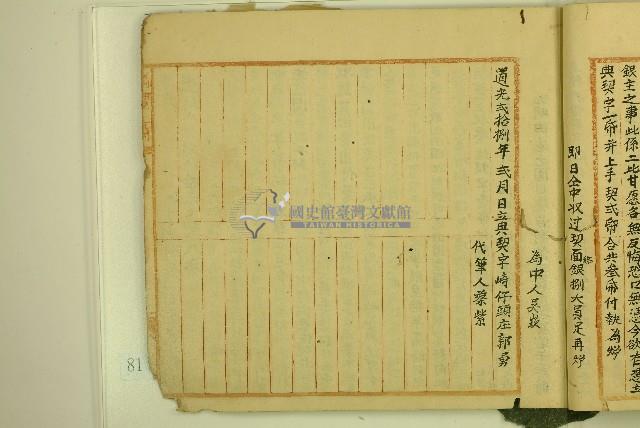 銀主之事此係二比甘愿各無反悔恐口無憑今欲有憑立
典契字一帋并上手契弍帋合共叁帋付執為炤
即日仝中收过契面銀捌大員足再炤
為中人吳
道光弍拾捌年弍月日立典契字崎仔頭庄郭勇
代筆人蔡紫
國史館臺灣文獻館
TAIWAN HISTORICA
81